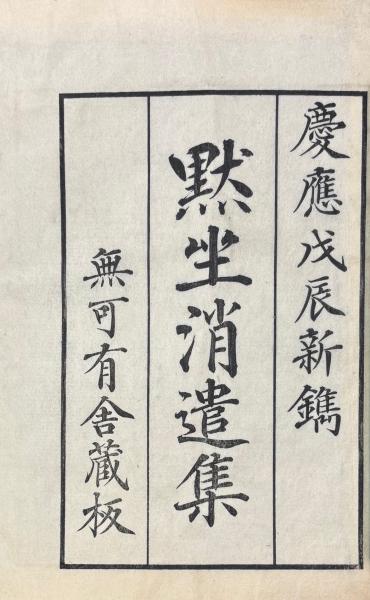 慶應戊辰新鐫
默坐消遣集
無可有舍藏板